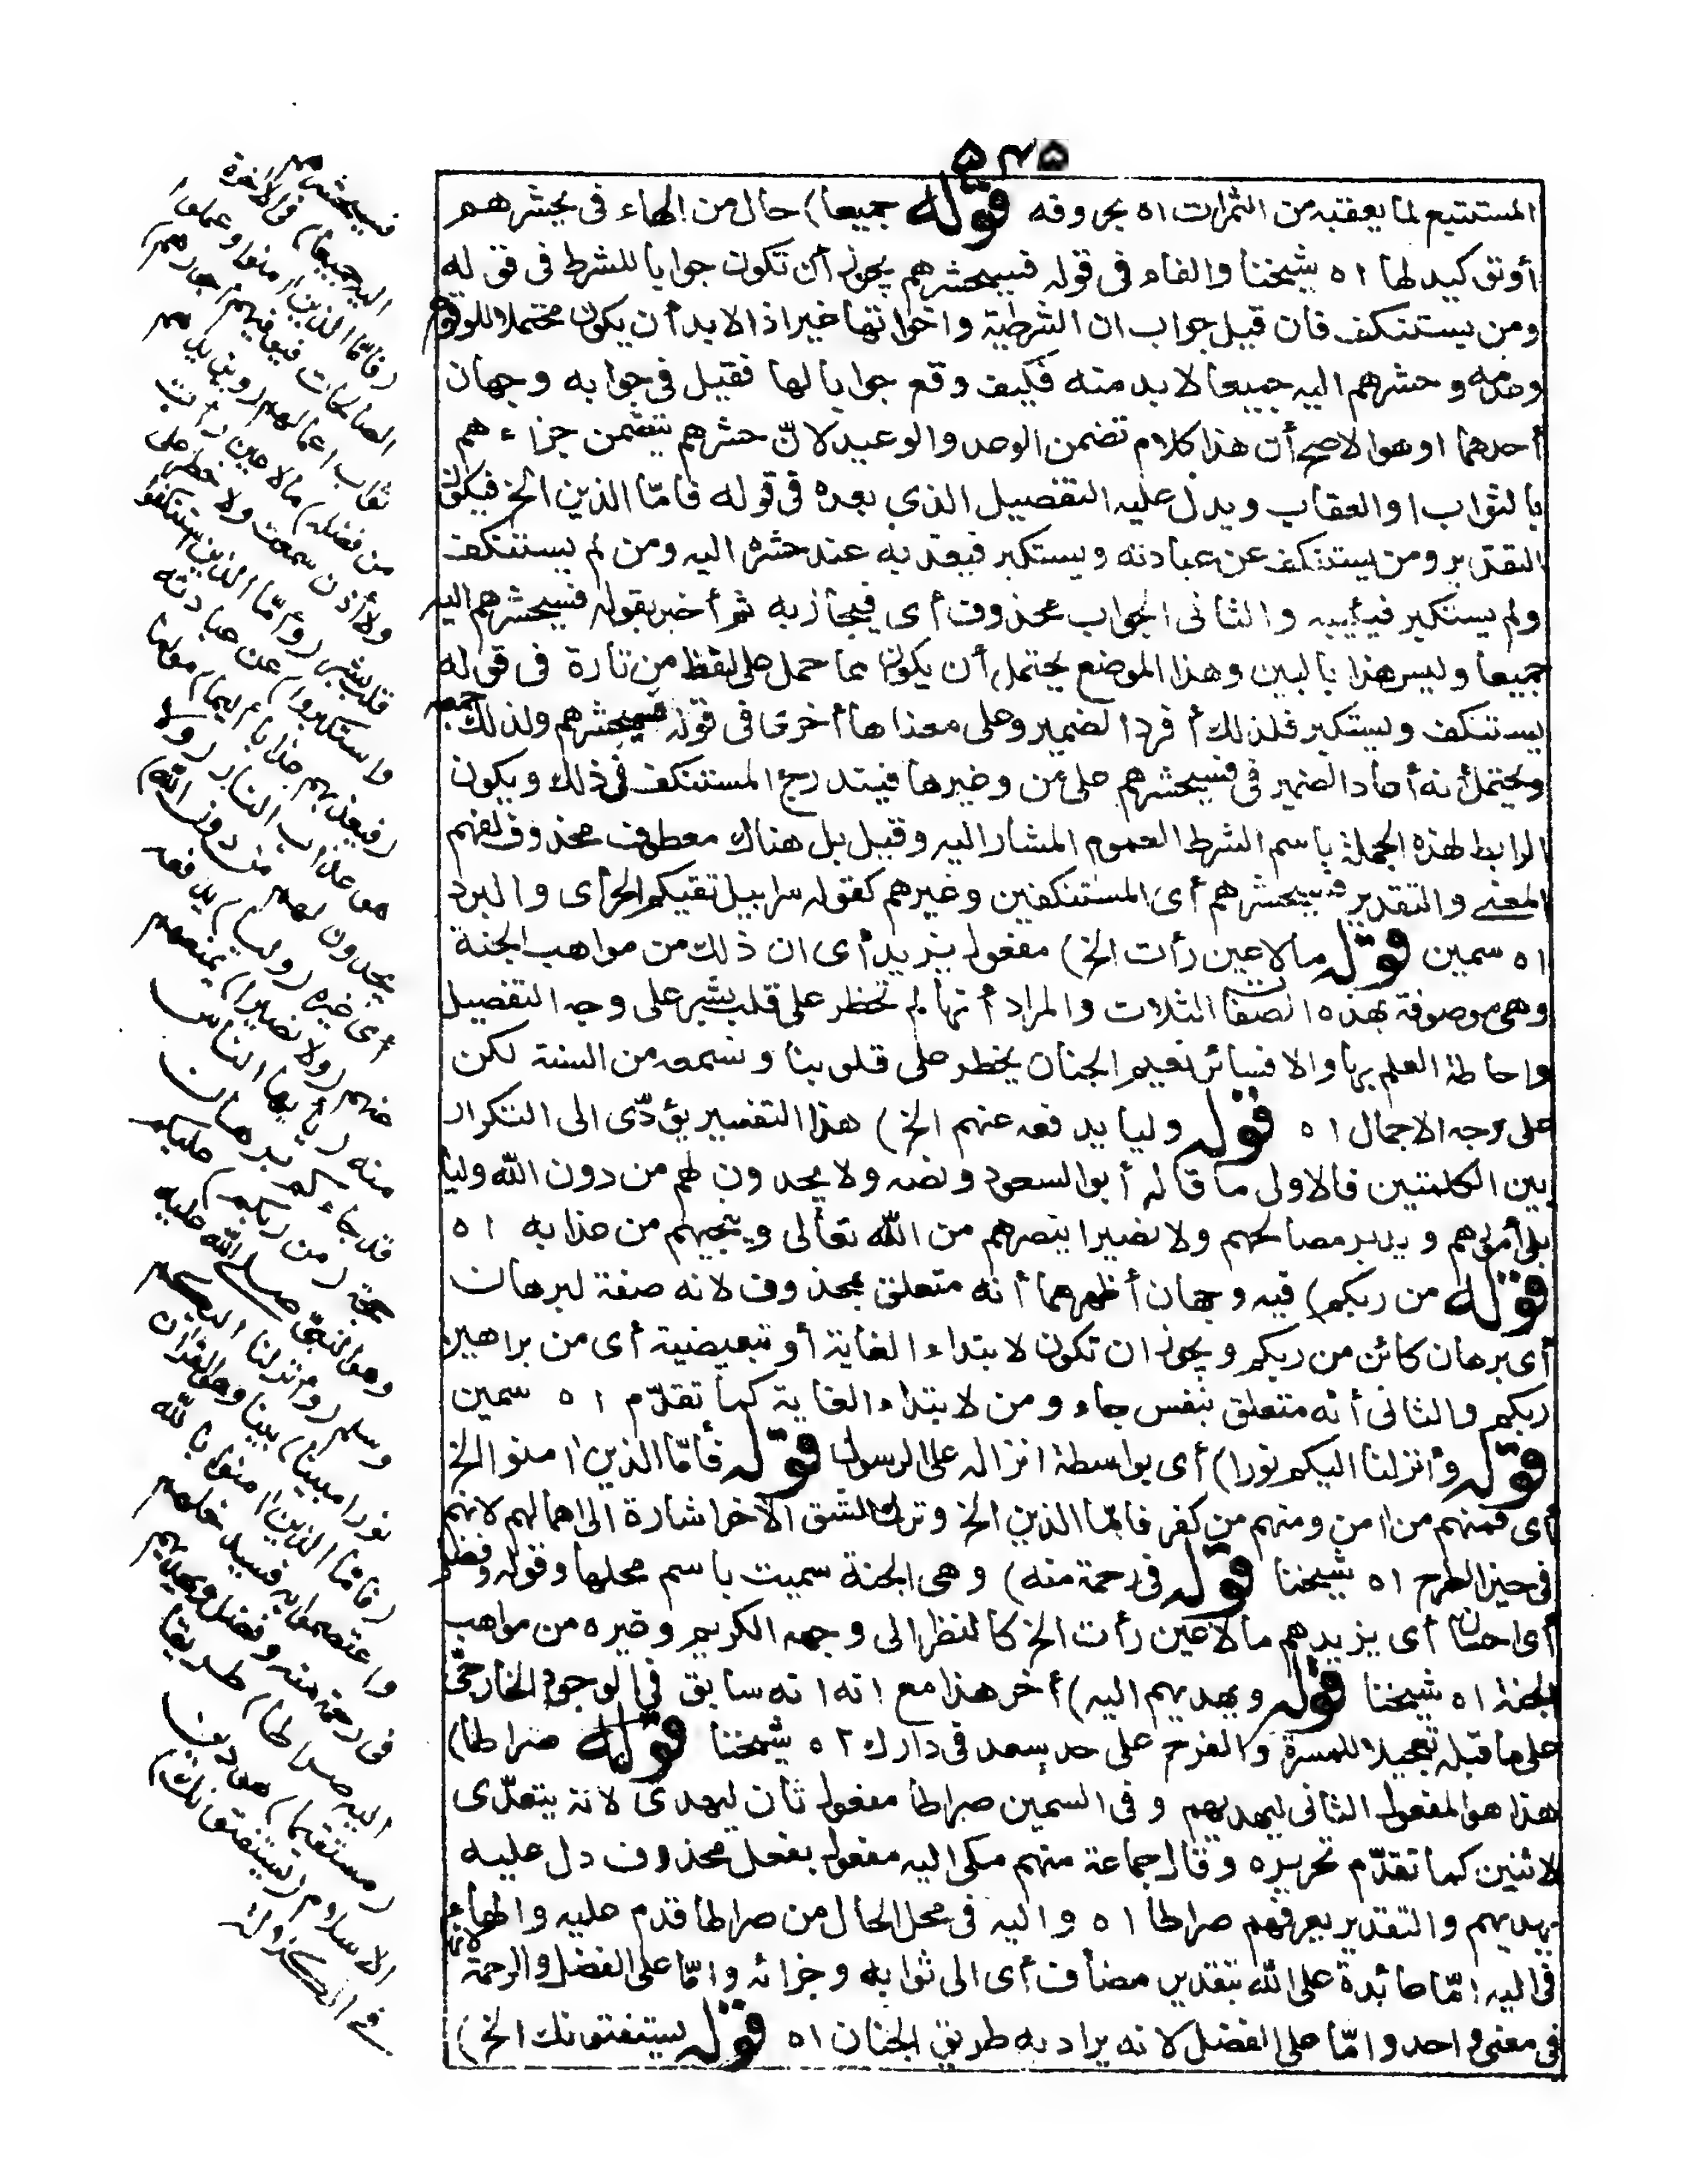 ٥٤٥
المستتبع لما يعقبه من الثمرات اه بحروفه قوله جميعا) حال من الهاء في يحشرهم
أو توكيد لها اه شيخنا والفاء في قوله فسيحشرهم يجوز أن تكون جوابا للشرط في قوله
ومن يستنكف فان قيل جواب ان الشرطية واخواتها غيراذا لا بد أن يكون محتملا للوقوع
وعدمه وحشرهم اليه جميعا لا بد منه فكيف وقع جوابا لها فقيل في جوابه وجهان
أحدهما وهو الاصح أن هذا كلام تضمن الوعد والوعيد لانّ حشرهم يتضمن جزاءهم
بالثواب او العقاب ويدل عليه التفصيل الذي بعده في قوله فامّا الذين الخ فيكون
التقدير ومن يستنكف عن عبادته ويستكبر فيعذبه عند حشره اليه ومن لم يستنكف
ولم يستكبر فيثيبه والثاني الجواب محذوف أي فيجازيه ثم أخبر بقوله فسيحشرهم اليه
جميعا وليس هذا بالبين وهذا الموضع يحتمل أن يكون مما حمل على لفظ من تارة في قوله
يستنكف ويستكبر فلذلك أفرد الضمير وعلى معناها أخرى في قوله فسيحشرهم ولذلك جمعه
ويحتمل أنه أعاد الضمير في فسيحشرهم على من وغيرها فيندرج المستنكف في ذلك ويكون
الرابط لهذه الجملة باسم الشرط العموم المشار اليه وقيل بل هناك معطوف محذوف لفهم
المعنى والتقدير فسيحشرهم أي المستنكفين وغيرهم كقوله سرابيل تقيكم الحر أي والبرد
اه سمين قوله ما لا عين رأت الخ) مفعول يزيد أي ان ذلك من مواهب الجنة
وهي موصوفة بهذه الصفات الثلاث والمراد أنها لم تخطر على قلب بشر على وجه التفصيل
واحاطة العلم بها والا فسائر نعيم الجنان يخطر على قلوبنا ونسمعه من السنة لكن
على وجه الاجمال اه قوله وليا يدفعه عنهم الخ) هذا التفسير يؤدّي الى التكرار
بين الكلمتين فالاولى ما قاله أبو السعود ونصه ولا يجدون لهم من دون الله وليا
يلي أمورهم ويدبر مصالحهم ولا نصيرا ينصرهم من الله تعالى وينجيهم من عذابه اه
قوله من ربكم) فيه وجهان أظهرهما أنه متعلق بمحذوف لانه صفة لبرهان
أي برهان كائن من ربكم ويجوز ان تكون لابتداء الغاية أو تبعيضية أي من براهين
ربكم والثاني أنه متعلق بنفس جاء ومن لابتداء الغاية كما تقدّم اه سمين
قوله وأنزلنا اليكم نورا) أي بواسطة انزاله على الرسول قوله فأمّا الذين امنوا الخ
أي فمنهم من امن ومنهم من كفر فامّا الذين الخ وترك الشق الآخر اشارة الى اهمالهم لانهم
في حيز الطرح اه شيخنا قوله في رحمة منه) وهي الجنة سميت باسم محلها وقوله وفضل
أي احسان أي يزيدهم ما لا عين رأت الخ كالنظر الى وجهه الكريم وغيره من مواهب
الجنة اه شيخنا قوله ويهديهم اليه) أخر هذا مع انه سابق في الوجود الخارجي
على ما قبله تعجيلا للمسرة والفرح على حد سعد في دارك اه شيخنا قوله صراطا)
هذا هو المفعول الثاني ليهديهم وفي السمين صراطا مفعول ثان ليهدي لانه يتعدّى
لاثنين كما تقدّم تحريره وقال جماعة منهم مكي اليه مفعول بفعل محذوف دل عليه
يهديهم والتقدير يعرفهم صراطا اه واليه في محل الحال من صراطا قدم عليه والهاء
في اليه امّا عائدة على الله بتقدير مضاف أي الى ثوابه وجزائه وامّا على الفضل والرحمة لانهما
في معنى واحد وامّا على الفضل لانه يراد به طريق الجنان اه قوله يستفتونك الخ)
فسيحشرهم
اليه جميعا) في الاخرة
(فامّا الذين امنوا وعملوا
الصالحات فيوفيهم أجورهم)
ثواب اعمالهم (ويزيدهم
من فضله) مالا عين رأت
ولا أذن سمعت ولا خطر على
قلب بشر (وأمّا الذين استنكفوا
واستكبروا) عن عبادته
(فيعذبهم عذابا أليما) مؤلما
هو عذاب النار (ولا
يجدون لهم من دون الله)
أي غيره (وليا) يدفعه
عنهم (ولا نصيرا) يمنعهم
منه (يأيها الناس
قد جاءكم برهان)
حجة (من ربكم) عليكم
وهو النبي صلى الله عليه
وسلم (وأنزلنا اليكم
نورا مبينا) بينا وهو القرآن
(فامّا الذين امنوا بالله
واعتصموا به فسيدخلهم
في رحمة منه وفضل ويهديهم
اليه صراطا) طريقا
(مستقيما) هو دين
الاسلام (يستفتونك)
في الكلالة